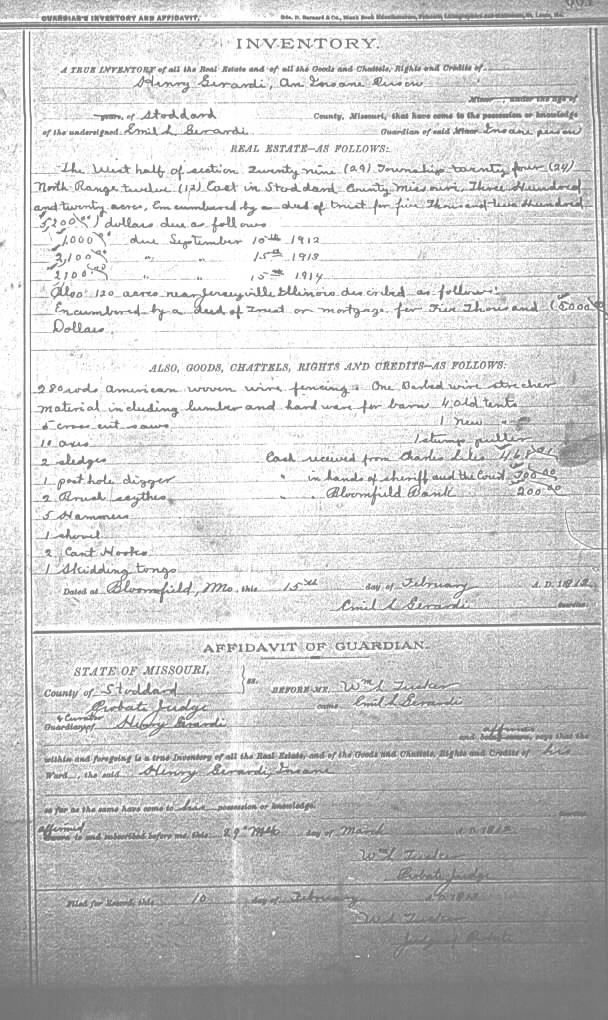 GUARDIAN'S INVENTORY AND AFFIDAVIT.
INVENTORY.
A TRUE INVENTORY of all the Real Estate and of all the Goods and Chattels, Rights and Credits of
Henry Gerardi, An Insane Person
Minor, under the age of
years, of Stoddard County, Missouri, that have come to the possession or knowledge
of the undersigned Emil L Gerardi Guardian of said Minor Insane person
REAL ESTATE—AS FOLLOWS:
The West half of section Twenty nine (29) Township twenty four (24)
North Range twelve (12) East in Stoddard County Missouri Three Hundred
and twenty acres, Encumbered by a deed of trust for five Thousand two Hundred
5,200 00) dollars due as follows
1,000 00 due September 10th 1912
2,100 00 " " 15th 1913
2,100 00 " " 15th 1914
Also 120 acres near Jerseyville Illinois described as follows:
Encumbered by a deed of Trust or mortgage for Five Thousand (5000 00
Dollars.
ALSO, GOODS, CHATTELS, RIGHTS AND CREDITS—AS FOLLOWS:
280 rods American woven wire fencing. One Barbed wire stretcher
material including lumber and hardware for barn 4 old tents
5 cross cut saws 1 new "
10 axes 1 stump puller
2 sledges Cash received from Charles Liles 468
1 post hole digger " in hands of sheriff and the Court 700 00
2 Brush scythes " " Bloomfield Bank 200 00
5 Hammers
1 shovel
2 Cant Hooks
1 Skidding tongs
Dated at Bloomfield, Mo, this 15th day of February A. D. 1912
Emil L Gerardi
AFFIDAVIT OF GUARDIAN.
STATE OF MISSOURI,
County of Stoddard ss. BEFORE ME, Wm L Tucker
Probate Judge came Emil L Gerardi
& Curator
Guardian of Henry Gerardi
affirmed
and says that the
within and foregoing is a true Inventory of all the Real Estate, and of the Goods and Chattels, Rights and Credits of his
Ward, the said Henry Gerardi, Insane
so far as the same have come to his possession or knowledge.
affirmed
Sworn to and subscribed before me, this 29th day of March A. D. 1912
Wm L Tucker
Probate Judge
Filed for Record, this 10 day of February A. D. 1912
Wm L Tucker
Judge of Probate